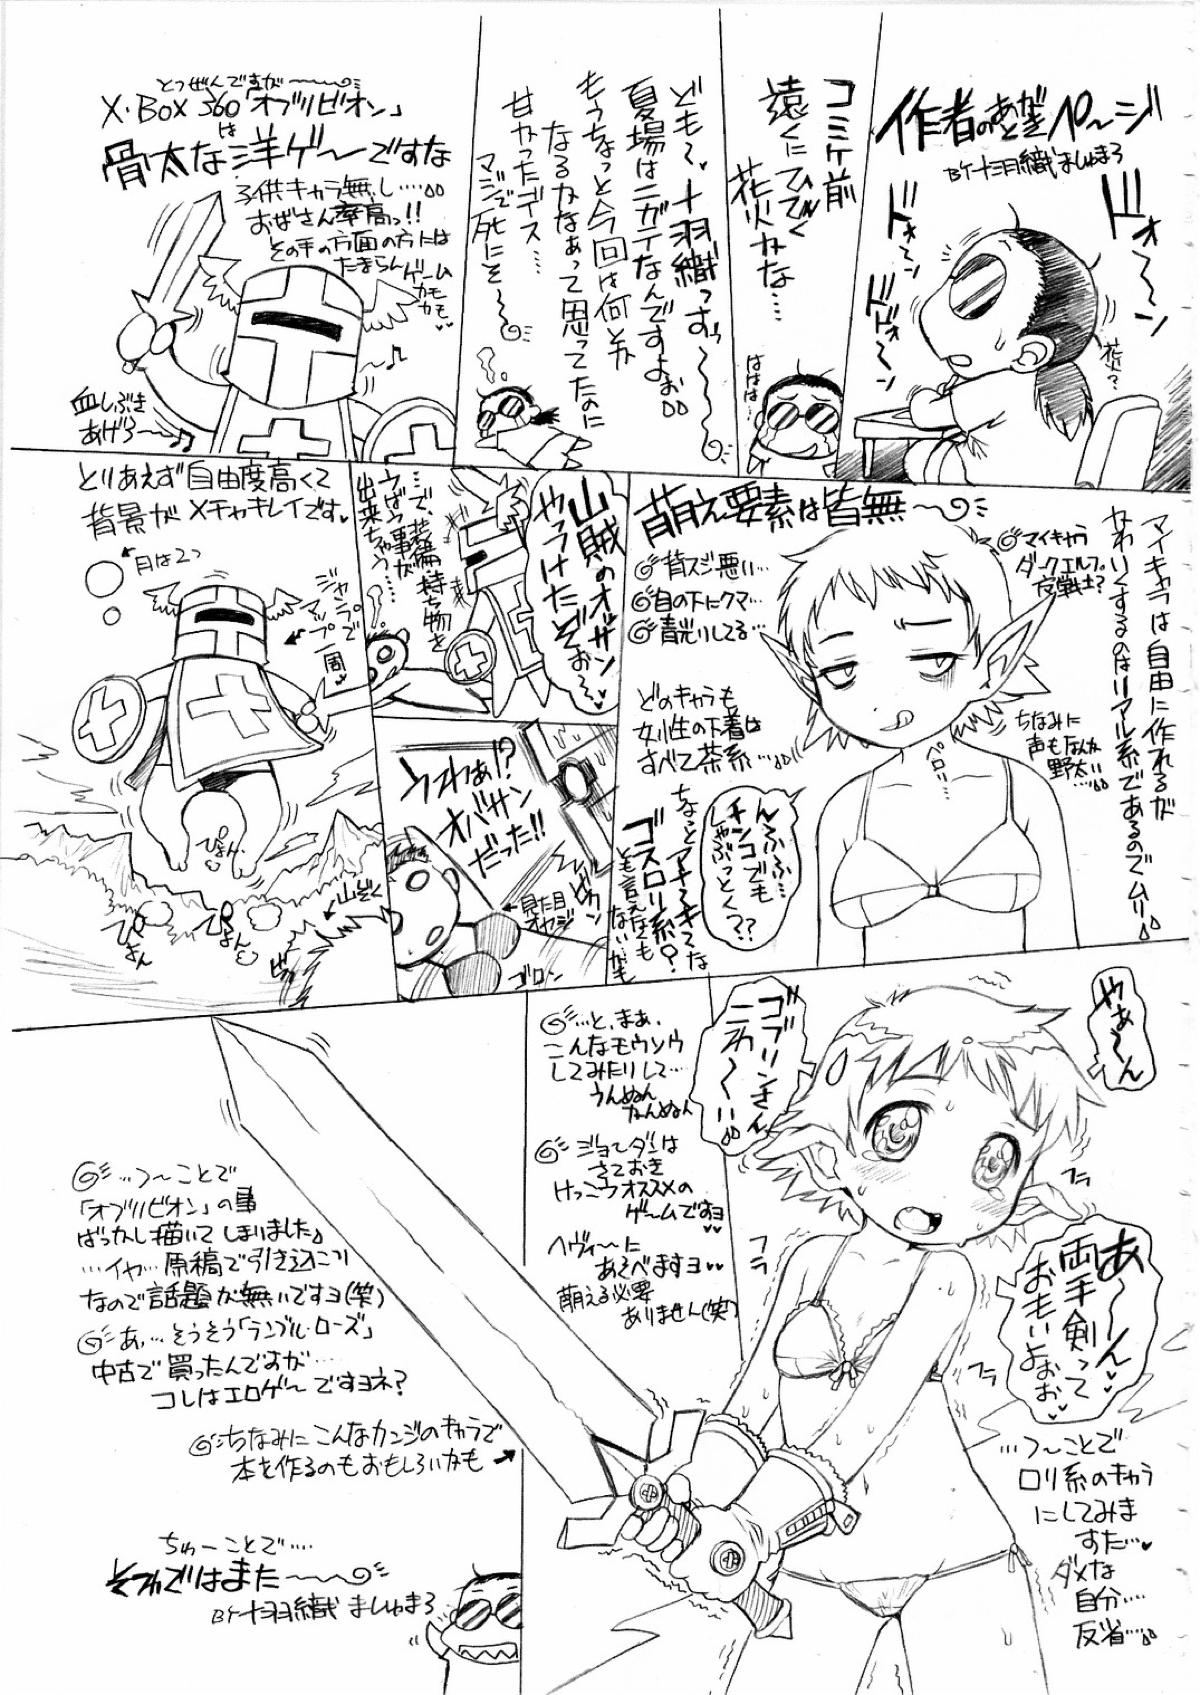 作者のあとがきペ〜ジ
BY十羽織ましゅまろ
ドォ〜ン
ドォ〜ン
ドドォ〜ン
花火?
コミケ前
遠くにひびく
花火かな…
ははは…
どもで、十羽織っすぅ〜
夏場はニガテなんですよぉ
もうちっと今回は何とか
なるかなあって思ってたのに
甘かったデス…
マジで死にそ〜
とつぜんですが〜
X・BOX 360「オブリビオン」
は
骨太な洋ゲ〜ですな
子供キャラ無し…
おばさん率高っ!!
その手の方面の方には
たまらんゲーム
かも
かも
血しぶき
あげろ〜♪
マイキャラは自由に作れるが
かわいくするのはリアル系であるのでムリ
萌え要素は皆無〜
マイキャラ
ダークエルフ
女戦士?
背スジ悪い…
目の下にクマ…
青光りしてる…
どのキャラも
女性の下着は
すべて茶系…
ちなみに
声もなんか
野太い…
ペロッ…
んふふ…
チンコでも
しゃぶっとく??
山賊のオッサン
やっつけたぞぉ〜
…で、装備、持ち物を
うばう事が
出来ちゃう…
とりあえず自由度高くて
背景がメチャキレイです。
月は2つ
ジャンプで
マップ一周
ぴょん
ぴょん
ぴょん
山ぞく
うわぁ!?
オバサン
だった!!
見た目
オヤジ
ゴロン
ちょっとアキてきてな
ゴスロリ系?
とも言えなくも
ないかも
やぁ〜ん
ゴブリンさん
こわ〜い
あ〜〜ん
両手剣って
おもいよぉぉ
プルプル
…つ〜ことで
ロリ系のキャラ
にしてみま
すた…
ダメな
自分…
反省…
…と、まぁ、
こんなモウソウ
してみたりして…
うんぬん
かんぬん
ジョーダンは
さておき
けっこうオススメの
ゲームですヨ
ヘヴィ〜に
あそべますヨ
萌える必要
ありません(笑)
…つ〜ことで
「オブリビオン」の事
ばっかし描いてしまいました
…イヤ…原稿で引きこもり
なので話題が無いですヨ(笑)
あ…そうそう「ランブルローズ」
中古で買ったんですが…
コレはエロゲ〜ですヨネ?
ちなみにこんなカンジのキャラで
本を作るのもおもしろいかも
ちゅーことで…
それではまた〜
BY十羽織ましゅまろ